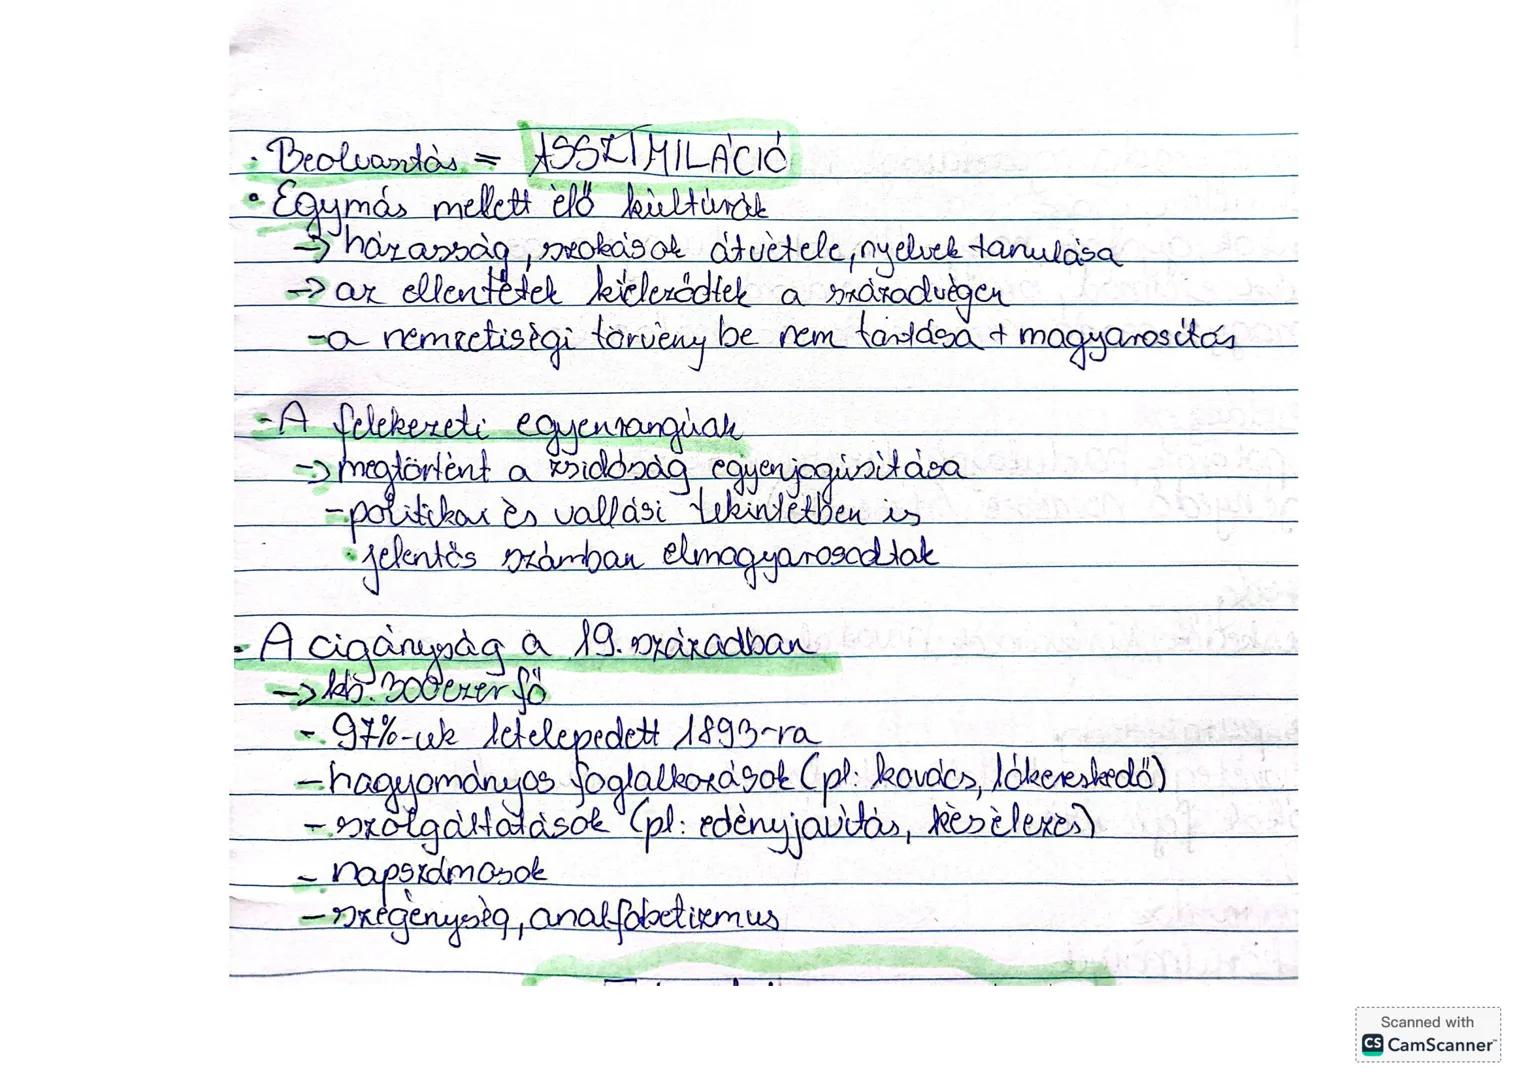 • Beolvasztás = ASSZIMILÁCIÓ
• Egymás mellett élő kultúrák
→ házasság, szokások átvétele, nyelvek tanulása
→ az ellentétek kiéleződtek a századvégen
- a nemzetiségi törvény be nem tartása + magyarosítás
- A felekezeti egyenrangúak
→ megtörtént a zsidóság egyenjogúsítása
- politikai és vallási tekintetben is
• jelentős számban elmagyarosodtak
• A cigányság a 19. században
→ kb. 300 ezer fő
- 97%-uk letelepedett 1893-ra
- hagyományos foglalkozások (pl: kovács, lókereskedő)
- szolgáltatások (pl: edényjavítás, késélezés)
- napszámosok
- szegénység, analfabetizmus
Scanned with
CS CamScanner